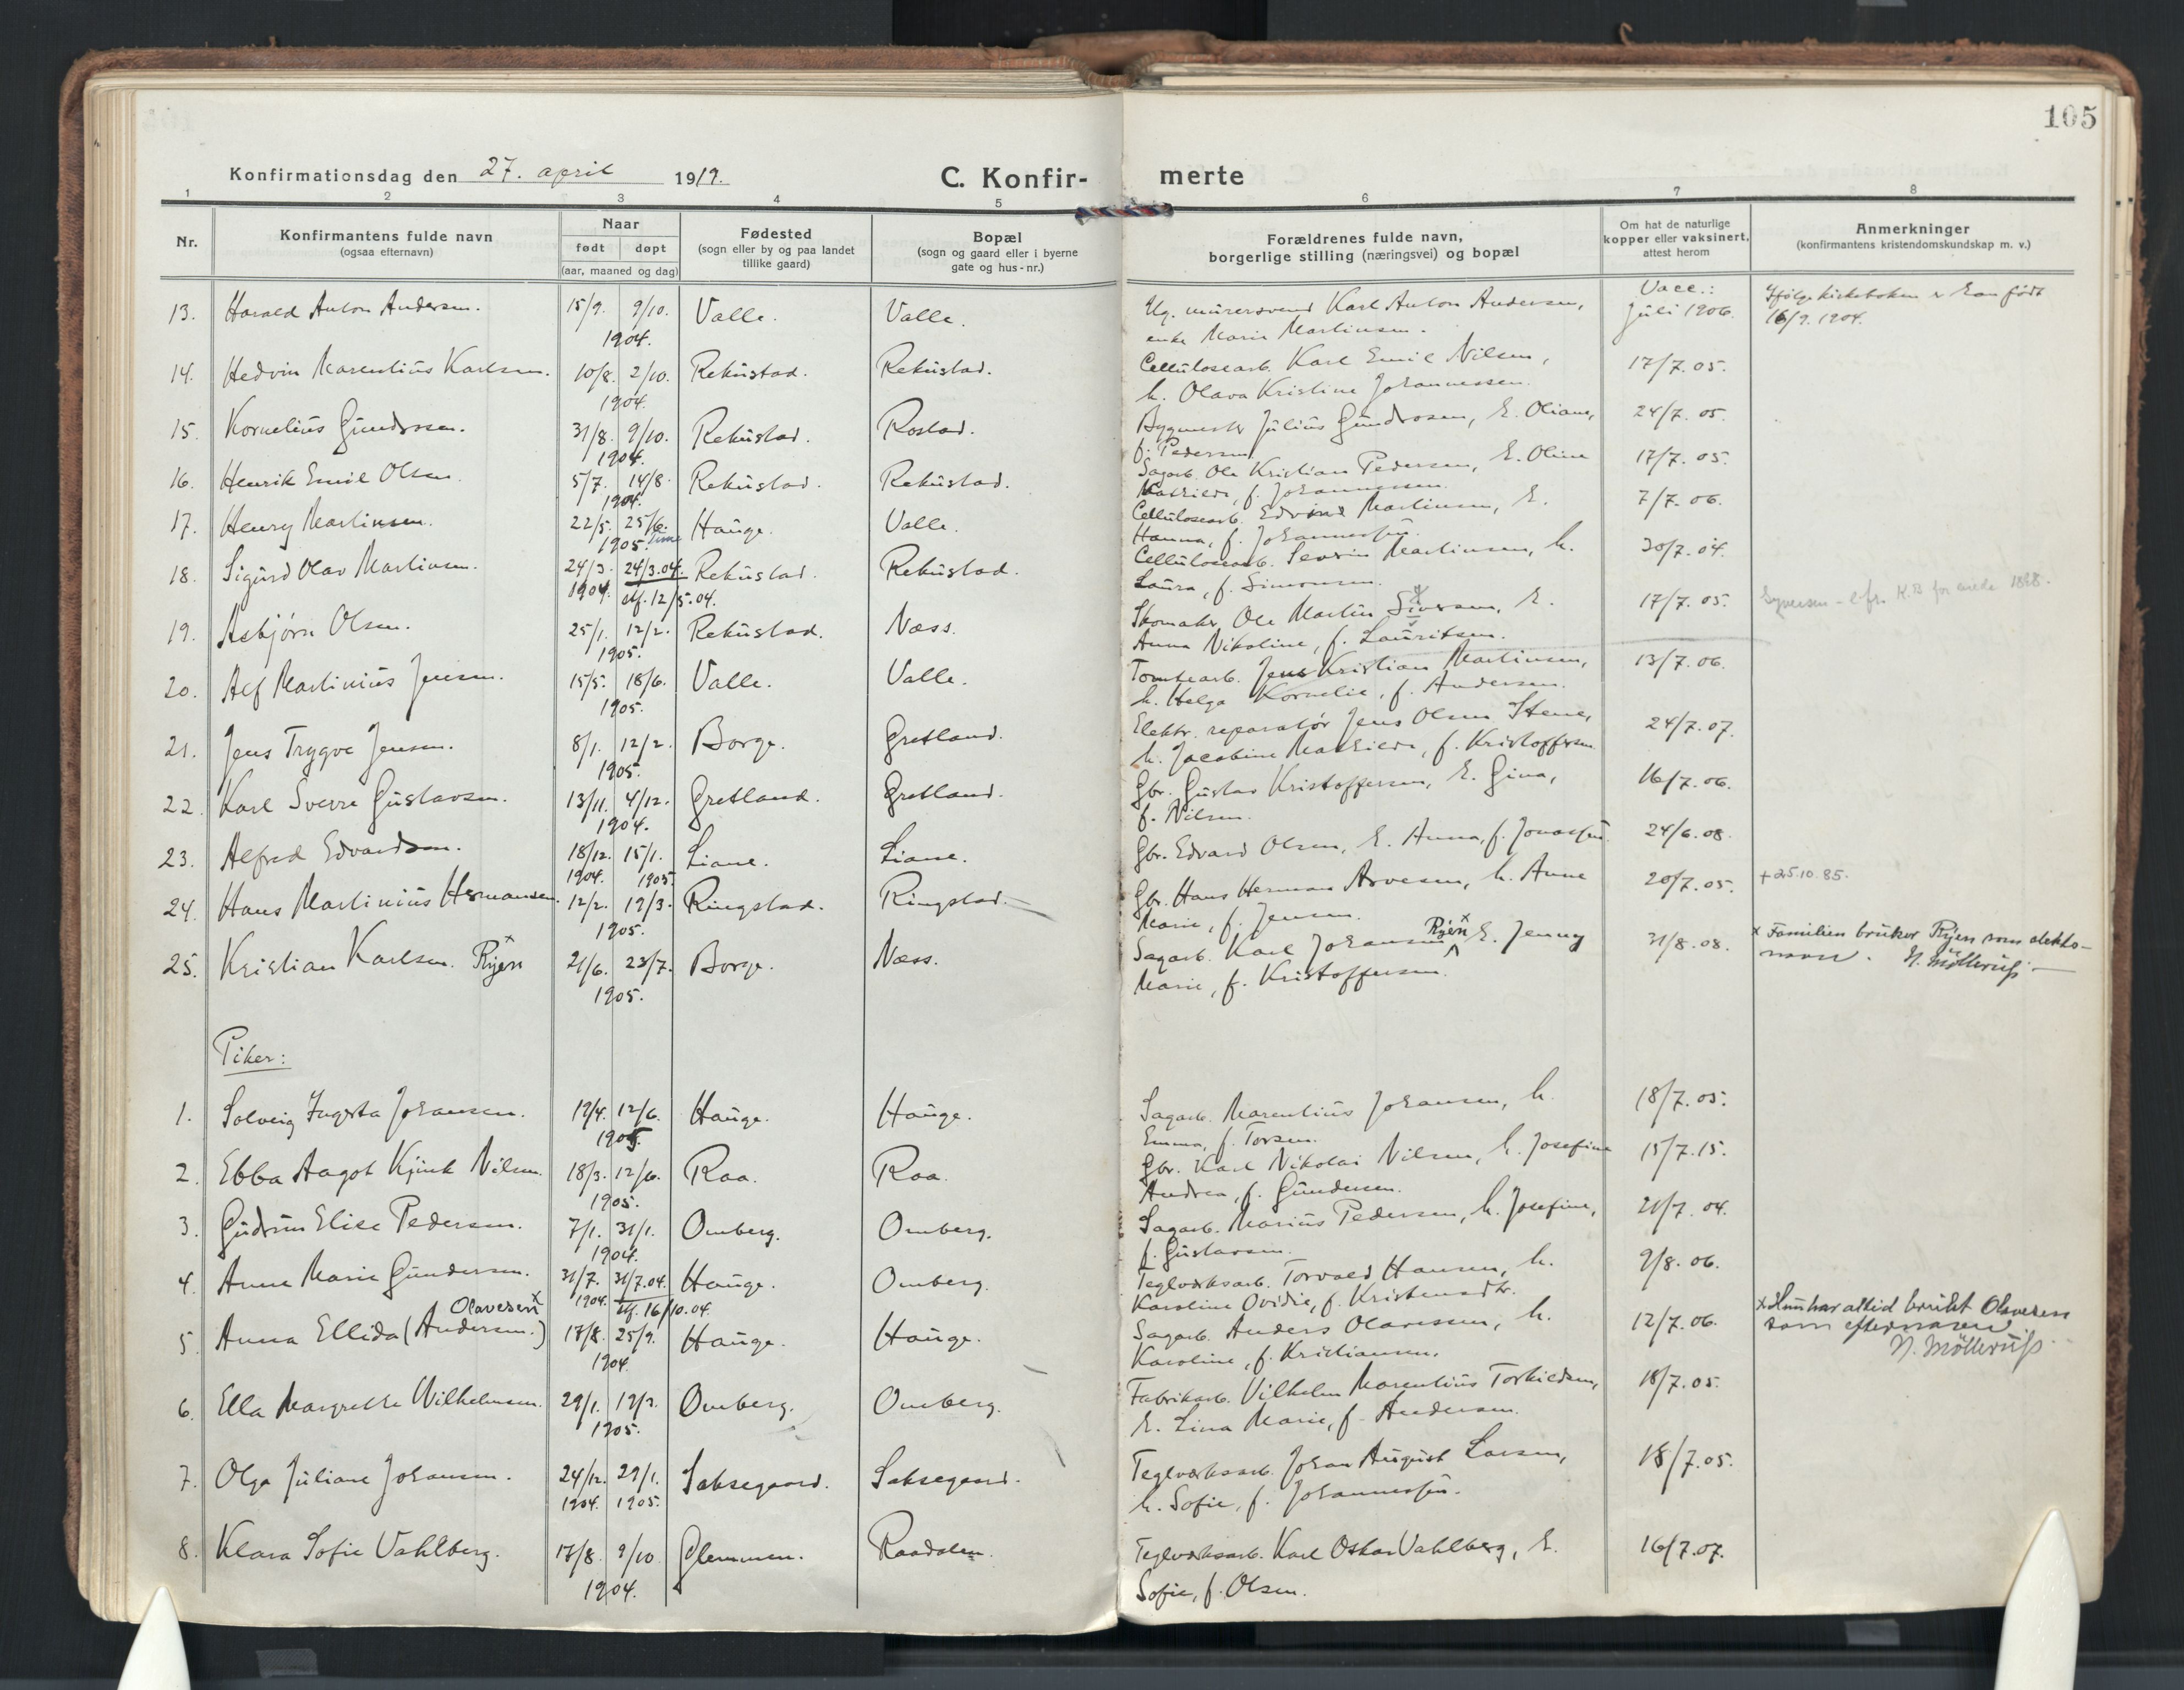 105
Konfirmationsdag den 27. april 1919.
C. Konfir-
merte
1 2 3 4 5 6 7 8
Nr.
Konfirmantens fulde navn
(ogsaa efternavn)
Naar
født døpt
(aar, maaned og dag)
Fødested
(sogn eller by og paa landet
tillike gaard)
Bopæl
(sogn og gaard eller i byerne
gate og hus-nr.)
Forældrenes fulde navn,
borgerlige stilling (næringsvei) og bopæl
Om hat de naturlige
kopper eller vaksinert,
attest herom
Anmerkninger
(konfirmantens kristendomskundskap m. v.)
Vacc.:
13. Harald Anton Andersen. 15/9. 9/10. Valle. Valle. Ug. murersvend Karl Anton Andersen, juli 1906. Ifølge kirkeboken er han født
1904. enke Marie Martinsen. 16/9. 1904.
14. Hedvin Marentius Karlsen. 10/8. 2/10. Rekustad. Rekustad. Cellulosearb. Karl Emil Nilsen, 17/7. 05.
1904. h. Olava Kristine Johannessen.
15. Kornelius Gundrosen. 31/8. 9/10. Rekustad. Rostad. Bygmester Julius Gundrosen, h. Oliane, 24/7. 05.
1904. f. Pedersen
16. Henrik Emil Olsen. 5/7. 14/8. Rekustad. Rekustad. Sagarb. Ole Kristian Pedersen, h. Oline 17/7. 05.
1904. Mathilde, f. Johannessen.
17. Henry Martinsen. 22/5. 25/6. Hauge. Valle. Cellulosearb. Edvind Martinsen, h. 7/7. 06.
1905. Hanna, f. Johannessen.
18. Sigurd Olav Martinsen. 24/3. 24/3.04. Rekustad. Rekustad. Cellulosearb. Severin Martinsen, h. 30/7. 04.
1904. stf. 12/5.04. Laura, f. Simonsen.
19. Asbjørn Olsen. 25/1. 12/2. Rekustad. Næss. Skomaker Ole Martin Siversen, h. 17/7. 05. Syversen - cfr. K.B for 1888.
1905. Anna Nikoline, f. Lauritsen.
20. Alf Martinius Jensen. 15/5. 18/6. Valle. Valle. Tomtearb. Jens Kristian Martinsen, 13/7. 06.
1905. h. Helga Kornelie, f. Andersen.
21. Jens Trygve Jensen. 8/1. 12/2. Borge. Gretland. Elektr. reparatør Jens Olsen Stene, 24/7. 07.
1905. h. Jacobine Mathilde, f. Kristoffersen
22. Karl Sverre Gustavsen. 13/11. 4/12. Gretland. Gretland. Gbr. Gustav Kristoffersen, h. Gina, 16/7. 06.
1904. f. Nilsen.
23. Alfred Edvardsen. 18/12. 15/1. Liane. Liane. Gbr. Edvard Olsen, h. Anna, f. Jonassen 24/6. 08.
1904. 1905.
24. Hans Martinius Hermansen. 12/2. 19/3. Ringstad. Ringstad. Gbr. Hans Herman Arvesen, h. Anne 20/7. 05. +25.10.85.
1905. Marie, f. Jensen.
25. Kristian Karlsen. Ryen x 21/6. 23/7. Borge. Næss. Sagarb. Karl Johansen Ryen x h. Jenny 31/8. 08. x Familien bruker Ryen som slekts-
1905. Marie, f. Kristoffersen. navn. N. Møllerüss.
Piker:
1. Solveig Ingerta Johansen. 19/4. 12/6. Hauge. Hauge. Sagarb. Marentius Johansen, h. 18/7. 05.
1905. Emma, f. Torsen.
2. Ebba Aagot Kjirk Nilsen. 18/3. 12/6. Raa. Raa. Gbr. Karl Nikolai Nilsen, h. Josefine 15/7. 15.
1905. Andrea, f. Gundersen.
3. Gudrun Elise Pedersen. 7/1. 31/1. Omberg. Omberg. Sagarb. Marius Pedersen, h. Josefine, 21/7. 04.
1904. f. Gustavsen.
4. Anne Marie Gundersen. 31/7. 31/7.04. Hauge. Omberg. Teglverksarb. Torvald Hansen, h. 9/8. 06.
1904. stf. 16/10.04. Karoline Ovidie, f. Kristensdtr.
Olavesen x
5. Anna Ellida (Andersen.) 17/8. 25/9. Hauge. Hauge. Sagarb. Anders Olavessen, h. 12/7. 06. x Hun har altid brukt Olavesen
1904. Karoline, f. Kristiansen. som efternavn N. Møllerüss.
6. Ella Margrethe Wilhelmsen. 29/1. 19/3. Omberg. Omberg. Fabrikarb. Vilhelm Marentius Torkildsen, 18/7. 05.
1905. h. Lina Marie, f. Andersen.
7. Olga Juliane Johansen. 24/12. 29/1. Saksegaard. Saksegaard. Teglverksarb. Johan August Larsen, 18/7. 05.
1904. 1905. h. Sofie, f. Johannessen.
8. Klara Sofie Vahlberg. 17/8. 9/10. Glemmen. Raadalen. Teglverksarb. Karl Oskar Vahlberg, h. 16/7. 07.
1904. Sofie, f. Olsen.